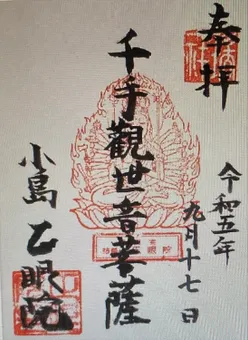 奉拝
令和五年
九月十七日
千手觀世音菩薩
小島 乙眼院